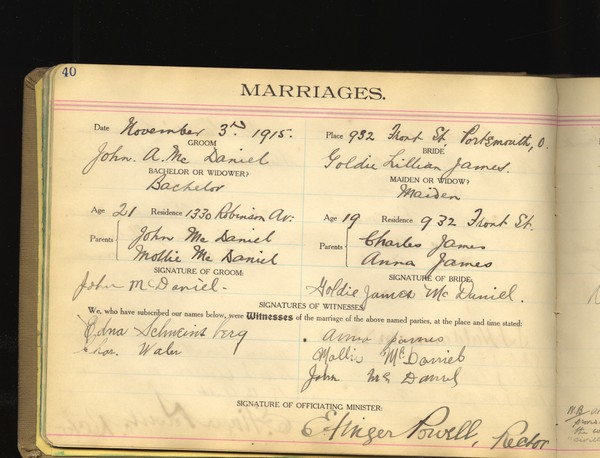 40
MARRIAGES.
Date November 3rd 1915. Place 932 Front St, Portsmouth, O.
GROOM BRIDE
John. A. Mc Daniel Goldie Lillian James.
BACHELOR OR WIDOWER? MAIDEN OR WIDOW?
Bachelor Maiden
Age 21 Residence 1330 Robinson Av: Age 19 Residence 932 Front St.
Parents John Mc Daniel Parents Charles James
Mollie Mc Daniel Anna James
SIGNATURE OF GROOM: SIGNATURE OF BRIDE:
John McDaniel. Goldie James Mc Daniel.
SIGNATURES OF WITNESSES
We, who have subscribed our names below, were Witnesses of the marriage of the above named parties, at the place and time stated:
Edna James
Mollie McDaniel
John McDaniel
SIGNATURE OF OFFICIATING MINISTER:
Powell, Rector
N.B.